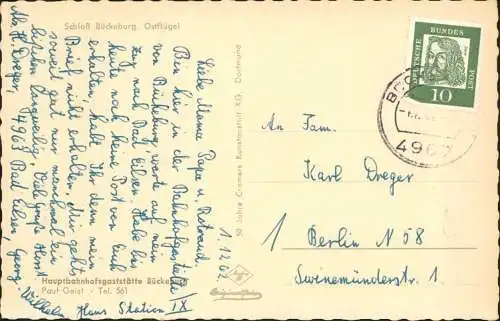 Schloß Bückeburg Ostflügel
1.12.62
Liebe Mama Papa u.
Bin hier in der Bahnhofgaststätte
von Bückeburg warte auf mein
Zug nach Bad Eilsen. Habe bis
heute noch keine Post von Euch
erhalten, habt Ihr denn mein
Brief nicht erhalten. Mir geht's
soweit gut nur manchmal ein
bißchen langweilig. Viele Grüße Horst
Abs. H. Dreger, 4968 Bad Eilsen, Georg-
Wilhelm Haus Station IX
Hauptbahnhofgaststätte Bücke
Paul Geist / Tel. 561
50 Jahre Cramers Kunstanstalt KG. Dortmund
DEUTSCHE BUNDESPOST
10
4967
An Fam.
Karl Dreger
1 Berlin N 58
Swinemünderstr. 1